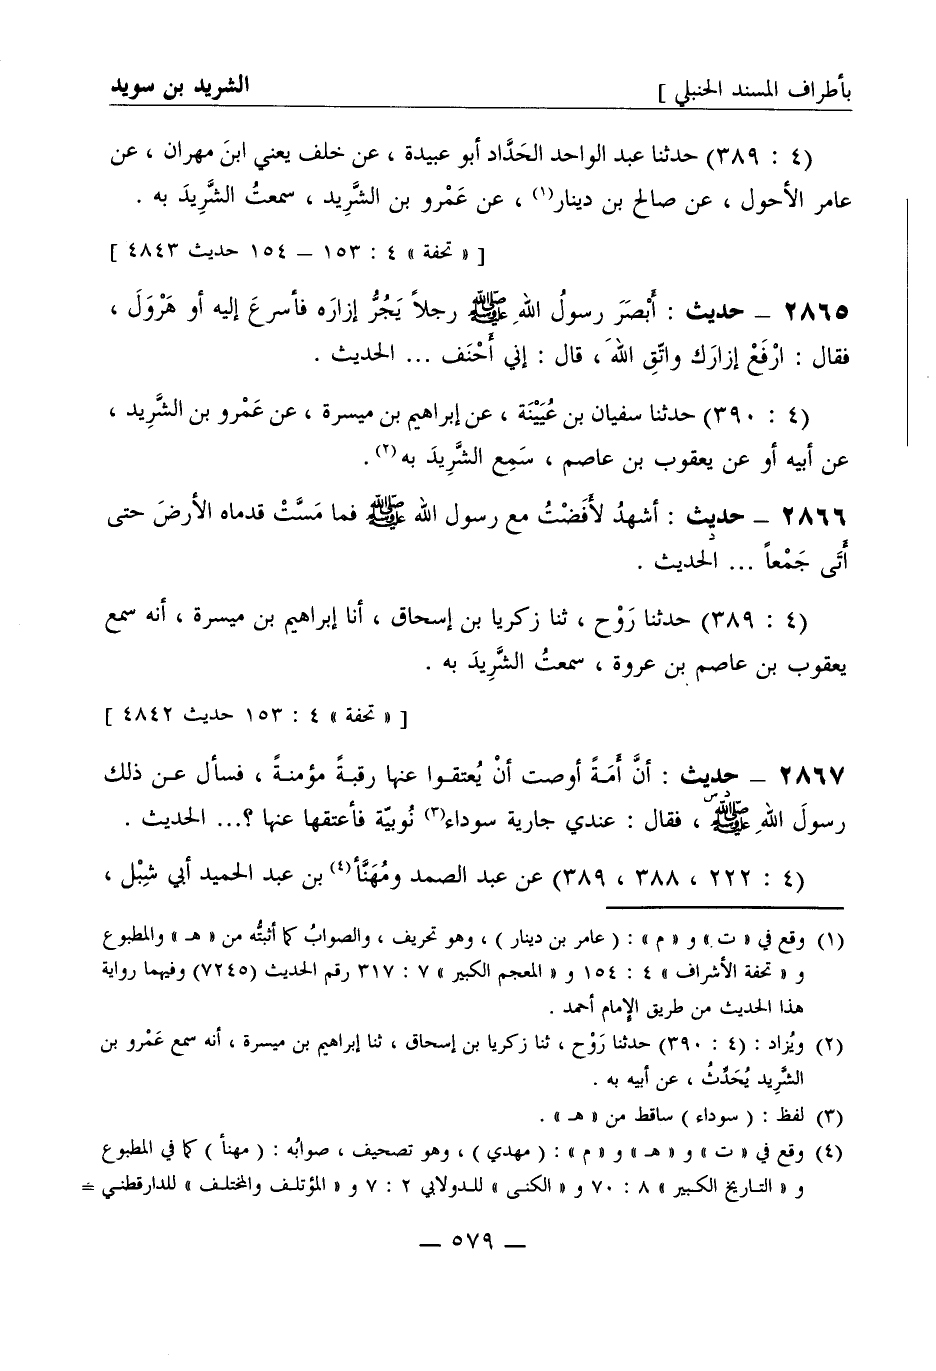 بأطراف المسند الحنبلي ] الشريد بن سويد
(٤ : ٣٨٩) حدثنا عبد الواحد الحَدَّاد أبو عبيدة ، عن خلف يعني ابنَ مهران ، عن
عامر الأحول ، عن صالح بن دينار(١) ، عن عَمْرو بن الشَّرِيد ، سمعتُ الشَّرِيدَ به .
[ « تحفة » ٤ : ١٥٣ – ١٥٤ حديث ٤٨٤٣ ]
٢٨٦٥ – حديث : أَبْصَرَ رسولُ اللهِ ﷺ رجلاً يَجُرُّ إزارَه فأسرعَ إليه أو هَرْوَلَ ،
فقال : ارْفَعْ إزارَك واتّقِ اللهَ ، قال : إني أَحْنَف ... الحديث .
(٤ : ٣٩٠) حدثنا سفيان بن عُيَيْنَة ، عن إبراهيم بن ميسرة ، عن عَمْرو بن الشَّرِيد ،
عن أبيه أو عن يعقوب بن عاصم ، سَمِع الشَّرِيدَ به(٢) .
٢٨٦٦ – حديث : أشهدُ لأَفَضْتُ مع رسول الله ﷺ فما مَسَّتْ قدماه الأرضَ حتى
أَتَى جَمْعاً ... الحديث .
(٤ : ٣٨٩) حدثنا رَوْح ، ثنا زكريا بن إسحاق ، أنا إبراهيم بن ميسرة ، أنه سمع
يعقوب بن عاصم بن عروة ، سمعتُ الشَّرِيدَ به .
[ « تحفة » ٤ : ١٥٣ حديث ٤٨٤٢ ]
٢٨٦٧ – حديث : أنَّ أَمَةً أوصت أنْ يُعتقوا عنها رقبةً مؤمنةً ، فسأل عن ذلك
رسولَ اللهِ ﷺ ، فقال : عندي جارية سوداء(٣) نُوبيّة فأعتقها عنها ؟... الحديث .
(٤ : ٢٢٢ ، ٣٨٨ ، ٣٨٩) عن عبد الصمد ومُهَنَّأ(٤) بن عبد الحميد أبي شِبْل ،
(١) وقع في « ت » و « م » : ( عامر بن دينار ) ، وهو تحريف ، والصوابُ كما أثبتُّه من « هـ » والمطبوع
و « تحفة الأشراف » ٤ : ١٥٤ و « المعجم الكبير » ٧ : ٣١٧ رقم الحديث (٧٢٤٥) وفيهما رواية
هذا الحديث من طريق الإمام أحمد .
(٢) ويُزاد : (٤ : ٣٩٠) حدثنا رَوْح ، ثنا زكريا بن إسحاق ، ثنا إبراهيم بن ميسرة ، أنه سمع عَمْرو بن
الشَّرِيد يُحَدِّثُ ، عن أبيه به .
(٣) لفظ : ( سوداء ) ساقط من « هـ » .
(٤) وقع في « ت » و « هـ » و « م » : ( مهدي ) ، وهو تصحيف ، صوابُه : ( مهنأ ) كما في المطبوع
و « التاريخ الكبير » ٨ : ٧٠ و « الكنى » للدولابي ٢ : ٧ و « المؤتلف والمختلف » للدارقطني =
– ٥٧٩ –